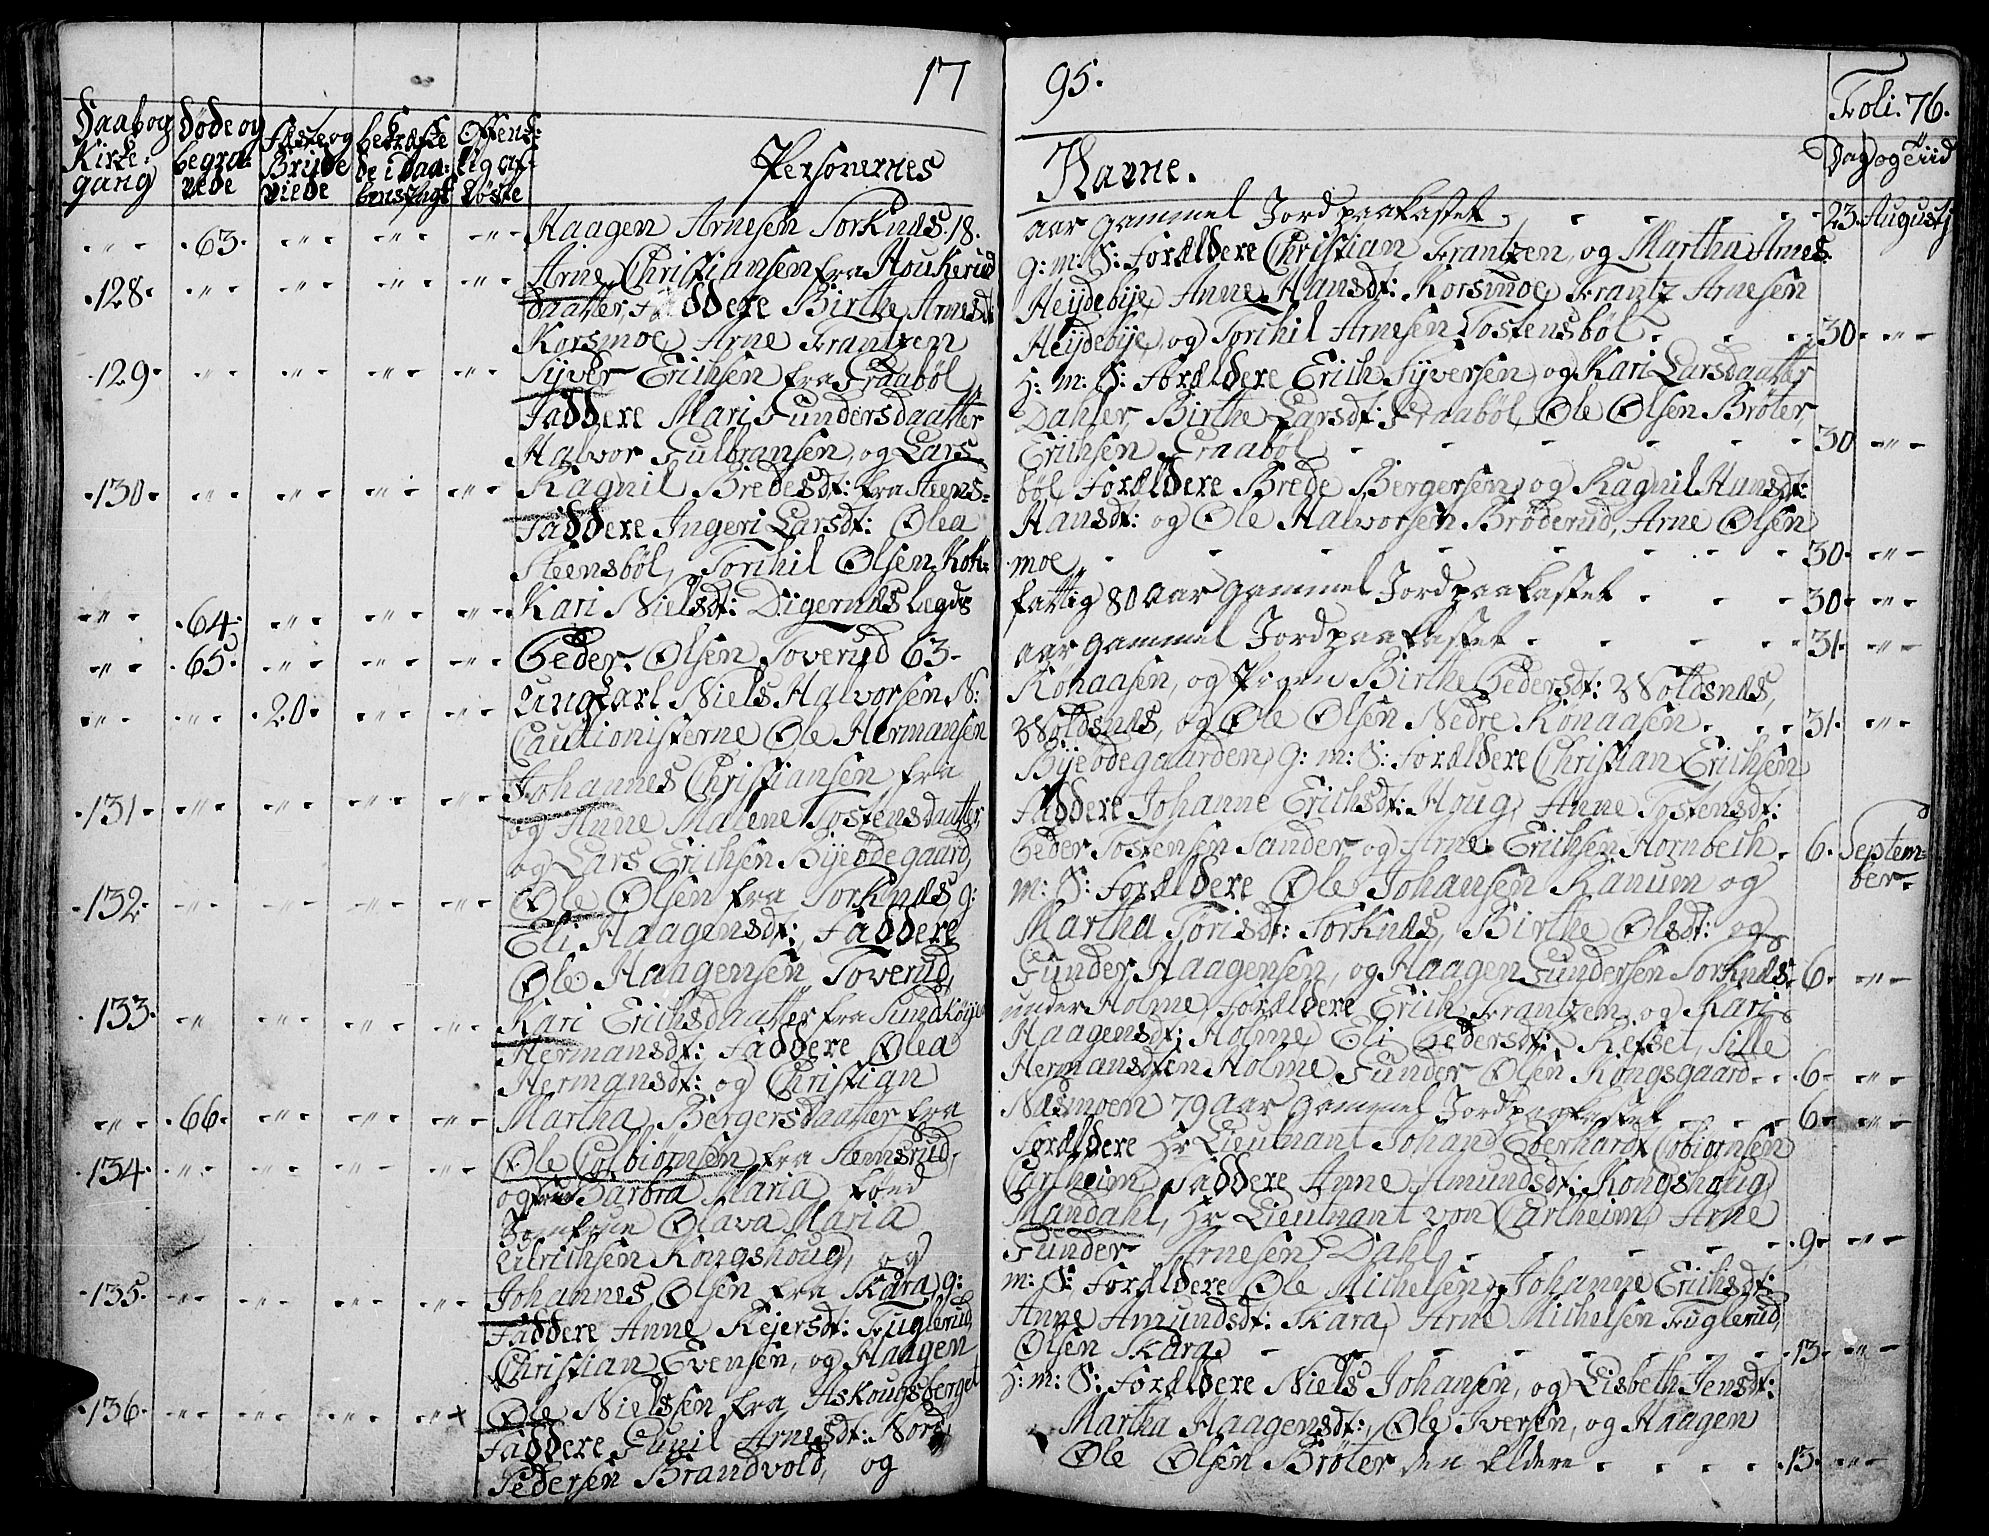 17
95.
Foli. 76.
Daab og Kirke: gang
Døde og begra: vede
Fæste og Brude viede
bekræfte de i Daa: bens pagt
Offent: lig af: løste
Personernes
Navne.
Dag og Tiid
63. Haagen Arnesen Torknæs. 18.
aar gammel Jord paakastet 23. Augustj
128. Arne Christiansen fra Houkerud
g: m: S: Forældere Christian Frantzen, og Martha Arnes:
daatter, Faddere Birthe Arnesdt:
Heijdebije, Anne Hansdt: Korsmoe, Frantz Arnesen
Korsmoe, Arne Frantzen
Heijdebije, og Torchil Arnesen Tostensbøl 30 - " -
129. Syver Erichsen fra Graabøl
H: m: S: Forældere Erich Syversen, og Kari Larsdaatter
Faddere Mari Gundersdaatter
Dahler, Birthe Larsdt: Graabøl, Ole Olsen Brøter,
Halvor Gulbransen, og Lars
Erichsen Graabøl 30 - " -
130. Ragnil Bredesdt: fra Steens=
bøl Forældere Brede Bergersen, og Ragnil Hansdt:
Faddere Ingeri Larsdt: Olea
Hansdt: og Ole Halvorsen Brøderud, Arne Olsen
Steensbøl, Torchil Olsen Kok=
moe 30. - " -
64. Kari Nielsdt: Digernæs lægds
fattig 80 aar gammel Jord paakastet 30. - " -
65. Peder Olsen Toverud 63.
aar gammel Jord paakastet 31. - " -
20. Ungkarl Niels Halvorsen N:
Kønaasen, og Pigen Birthe Pedersdt: Noldsnæs,
Cautionisterne Ole Hermansen
Noldsnæs, og Ole Olsen Nedre Kønaasen 31. - " -
131. Johannes Christiansen fra
Bijeødegaarden, g: m: S: Forældere Christian Erichsen
og Anne Malene Tostensdaatter
Faddere Johanne Erichsdt: Houg, Anne Tostensdt:
og Lars Erichsen Bijeødegaard,
Peder Tostensen Sander og Arne Erichsen Hornbech. 6. Septem= ber.
132. Ole Olsen fra Torknæs g:
m: S: Forældere Ole Johansen Ranum og
Eli Haagensdt:, Faddere
Martha Torisdt: Torknæs, Birthe Olsdt: og
Ole Haagensen Toverud,
Gunder Haagensen, og Haagen Gundersen Torknæs 6. - " -
133. Kari Erichsdaatter fra Sundkøijen
under Holme, Forældere Erich Frantzen, og Kari
Hermansdt: Faddere Olea
Haagensdt: Holme, Eli Pedersdt: Refset, Sille
Hermansdt: og Christian
Hermansdten Holme, Gunder Olsen Kongsgaard 6. - " -
66. Martha Bergersdaatter fra
Næsmoen 79 aar gammel Jord paakastet 6. - " -
134. Ole Colbiørnsen fra Stemsrud,
Forældere Hr Lieutnant Johan Eberhardt Cobiørnsen
og Barbra Maria
Carlheim, Faddere Anne Amundsdt: Kongshoug,
Jomfrue Olava Maria
Mandahl, Hr Lieutnant von Carlheim, Arne
Ulrichsen Kongshoug, og
Gunder Arnesen Dahl 9. - " -
135. Johannes Olsen fra Skara, g:
m: S: Forældere Ole Michelsen, Johanne Erichsdt:
Faddere Anne Rejersdt: Fuglerud,
Anne Amundsdt: Skara, Arne Michelsen Fuglerud,
Christian Evensen, og Haagen
Olsen Skara 13. - " -
136. Ole Nielssen fra Askougsberget
H: m: S: Forældere Niels Johansen, og Lisbeth Jensdt:
Faddere Gunil Arnesdt: Nord
Martha Haagensdt:, Ole Iversen, og Haagen
Pedersen Brandvold, og
Ole Olsen Brøter den Eldere 13. - " -